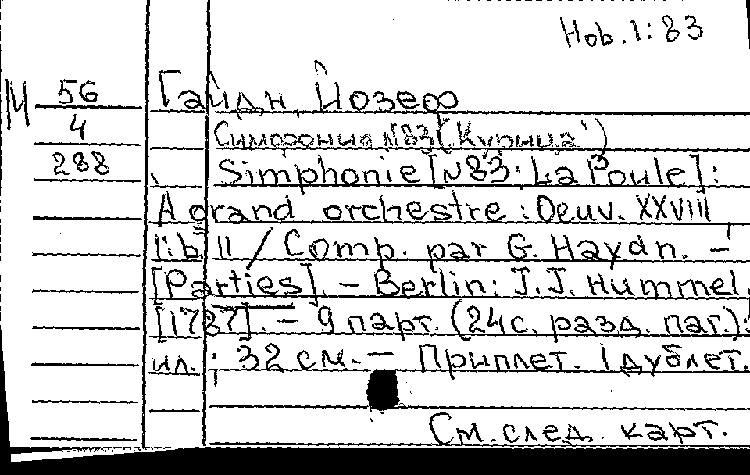 Hob. I: 83
М 56
4
288
Гайдн, Йозеф
Симфония №83 ("Курица")
Simphonie [N83: La Poule]:
A grand orchestre: Oeuv. XXVIII
lib. II / Comp. par G. Haydn. –
[Parties]. – Berlin: J.J. Hummel,
[1787]. – 9 парт. (24 с. разд. паг.):
ил.; 32 см. – Приплет. 1 дублет.
См. след. карт.